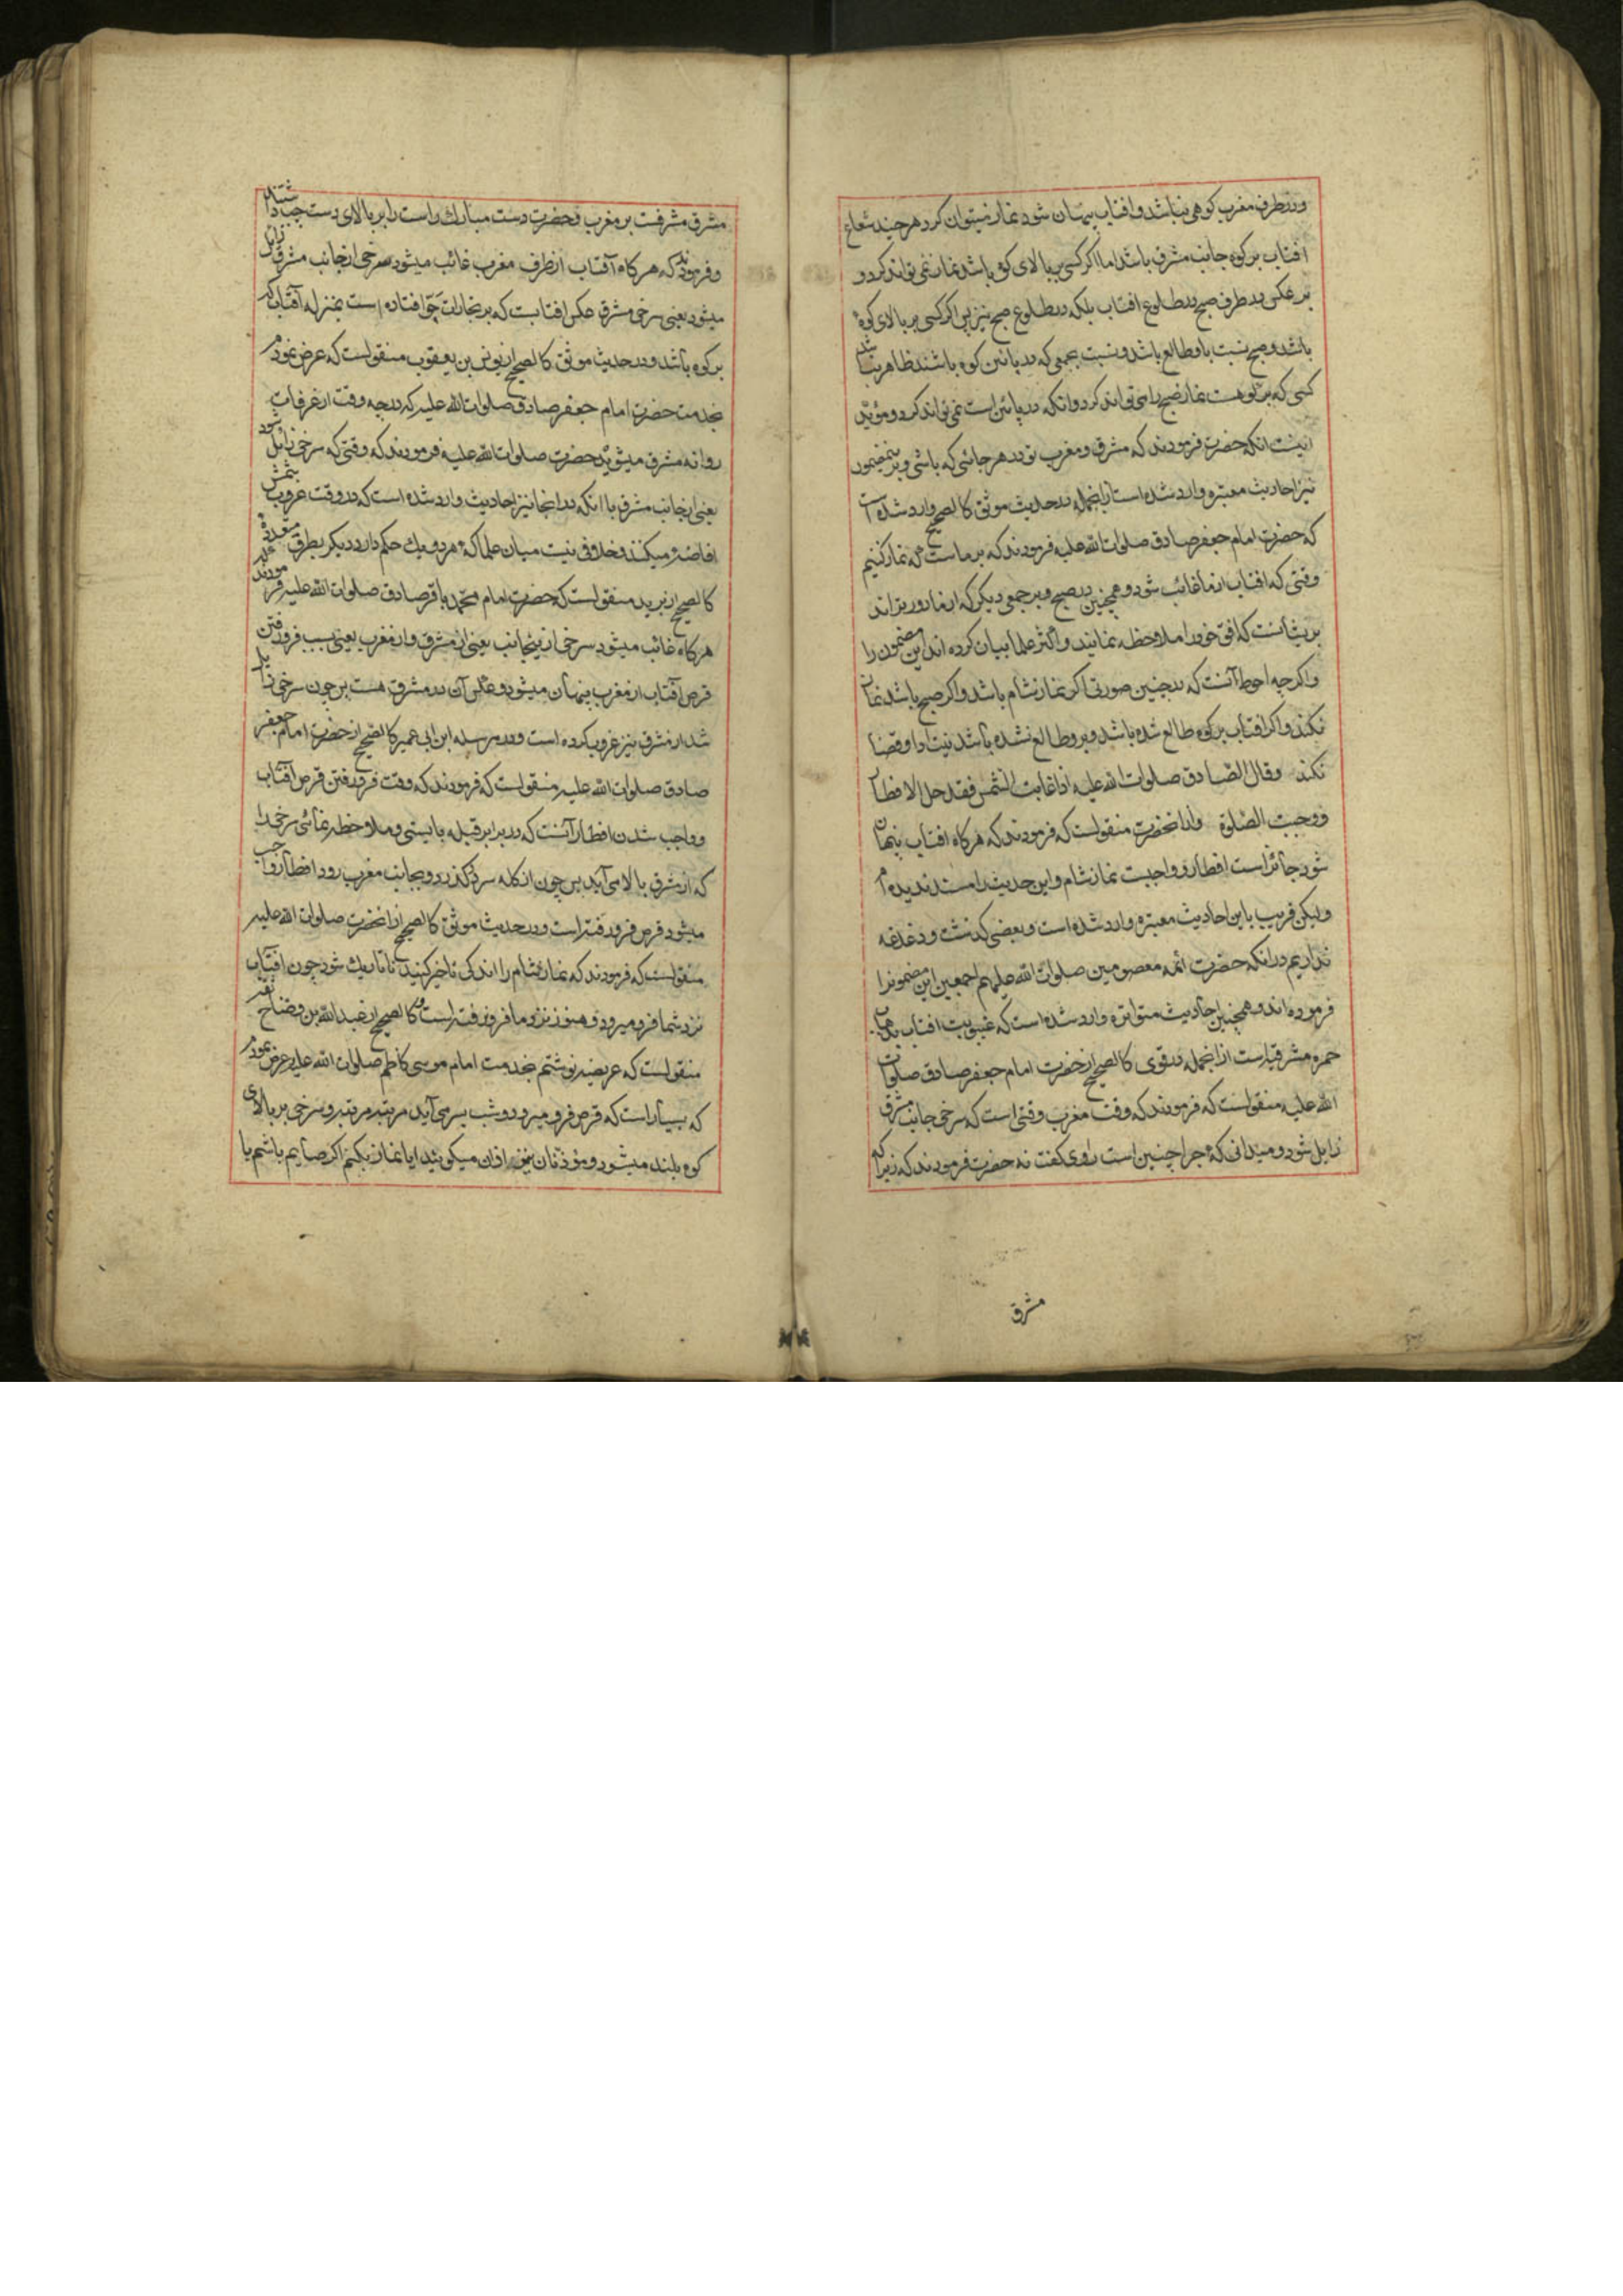 ودر طرف مغرب کوهی نباشد و افتاب پنهان شود نماز میتوان کرد هر چند شعاع
افتاب بر کوه جانب مشرق باشد اما اکر کسی ببالای کوه باشد نماز نمی تواند کرد و
بر عکس در طرف صبح در طلوع افتاب بلکه در طلوع صبح نیز پس اکر کسی بر بالای کوه
باشد و صبح نسبت باو طالع باشد و نسبت بجمعی که در پائین کوه باشند ظاهر نباشد
کسی که بر کوهست نماز صبح را می تواند کرد و انکه در پائین است نمی تواند کرد و مؤید
اینست انکه حضرت فرمودند که مشرق و مغرب تو در هر جائی که باشی و برینمضمون
نیز احادیث معتبره وارد شده است از انجمله در حدیث موثق کالصحیح وارد شده است
که حضرت امام جعفر صادق صلوات الله علیه فرمودند که بر ماست که نماز کنیم
وقتی که افتاب از ما غائب شود و همچنین در صبح و بر جمعی دیکر که از ما دورتراند
بریشانست که افق خود را ملاحظه نمایند و اکثر علما بیان کرده اند این مضمون را
و اکرچه احوط آنست که در چنین صورتی اکر نماز شام باشد و اکر صبح باشد نماز
نکند و اکر افتاب بر کوه طالع شده باشد و برو طالع نشده باشد نیت ادا و قضا
نکند وقال الصّادق صلوات الله علیه اذا غابت الشمس فقد حل الافطار
ووجبت الصّلوة و از انحضرت منقولست که فرمودند که هر کاه افتاب پنهان
شود جائز است افطار و واجبت نماز شام و این حدیث را مسند ندیده ام
ولیکن قریب باین احادیث معتبره وارد شده است و بعضی کذشت و دغدغه
نداریم در انکه حضرت ائمه معصومین صلوات الله علیهم اجمعین این مضمونرا
فرموده اند و همچنین احادیث متواتره وارد شده است که غیبوبت افتاب بذهاب
حمره مشرقیه است از انجمله در قوی کالصحیح از حضرت امام جعفر صادق صلوات
الله علیه منقولست که فرمودند که وقت مغرب وقتی است که سرخی جانب مشرق
زایل شود و میدانی که چرا چنین است راوی کفت نه حضرت فرمودند که زیرا که
مشرق
مشرق مشرفست بر مغرب و حضرت دست مبارک راست را بر بالای دست چپ داشتند
و فرمودند که هر کاه آفتاب از طرف مغرب غائب میشود سرخی از جانب مشرق زایل
میشود یعنی سرخی مشرق عکس افتابست که بر بخارات جوّ افتاده است بمنزله آفتاب که
بر کوه باشد و در حدیث موثق کالصحیح از یونس بن یعقوب منقولست که عرض نمودم
بخدمت حضرت امام جعفر صادق صلوات الله علیه که در چه وقت از عرفات
روانه مشرق میشوید حضرت صلوات الله علیه فرمودند که وقتی که سرخی زایل شود
یعنی از جانب مشرق با انکه در انجا نیز احادیث وارد شده است که در وقت غروب شمس
افاضه میکنند و خلافی نیست میان علما که هر دو یک حکم دارد و دیکر بطرق متعدده
کالصحیح از برید منقولست که حضرت امام محمد باقر صادق صلوات الله علیه فرمودند که
هرکاه غائب میشود سرخی از ینجانب یعنی از مشرق و از مغرب یعنی بسبب فرورفتن
قرص آفتاب از مغرب پنهان میشود و عکس آن در مشرق هست پس چون سرخی زایل
شد از مشرق نیز غروب کرده است و در مرسله ابن ابی عمیر کالصحیح از حضرت امام جعفر
صادق صلوات الله علیه منقولست که فرمودند که وقت فرورفتن قرص آفتاب
و واجب شدن افطار آنست که در برابر قبله بایستی و ملاحظه نمائی سرخی را
که از مشرق بالا می آید پس چون از کله سر درکذرد و بجانب مغرب رود افطار واجب
میشود قرص فرو رفته است و در حدیث موثق کالصحیح از انحضرت صلوات الله علیه
منقولست که فرمودند که نماز شام را اندکی تاخیر کنید تا تاریک شود چون افتاب
نزد شما فرو میرود و هنوز نزد ما فرو نرفته است و کالصحیح از عبد الله بن وضاح
منقولست که عریضه نوشتم بخدمت امام موسی کاظم صلوات الله علیه و عرض نمودم
که بسیار است که قرص فرو میرود و شب بسر می آید مرتبه مرتبه و سرخی بر بالای
کوه بلند میشود و مؤذنان نیز اذان میکویند ایا نماز بکنم اکر صایم باشم یا